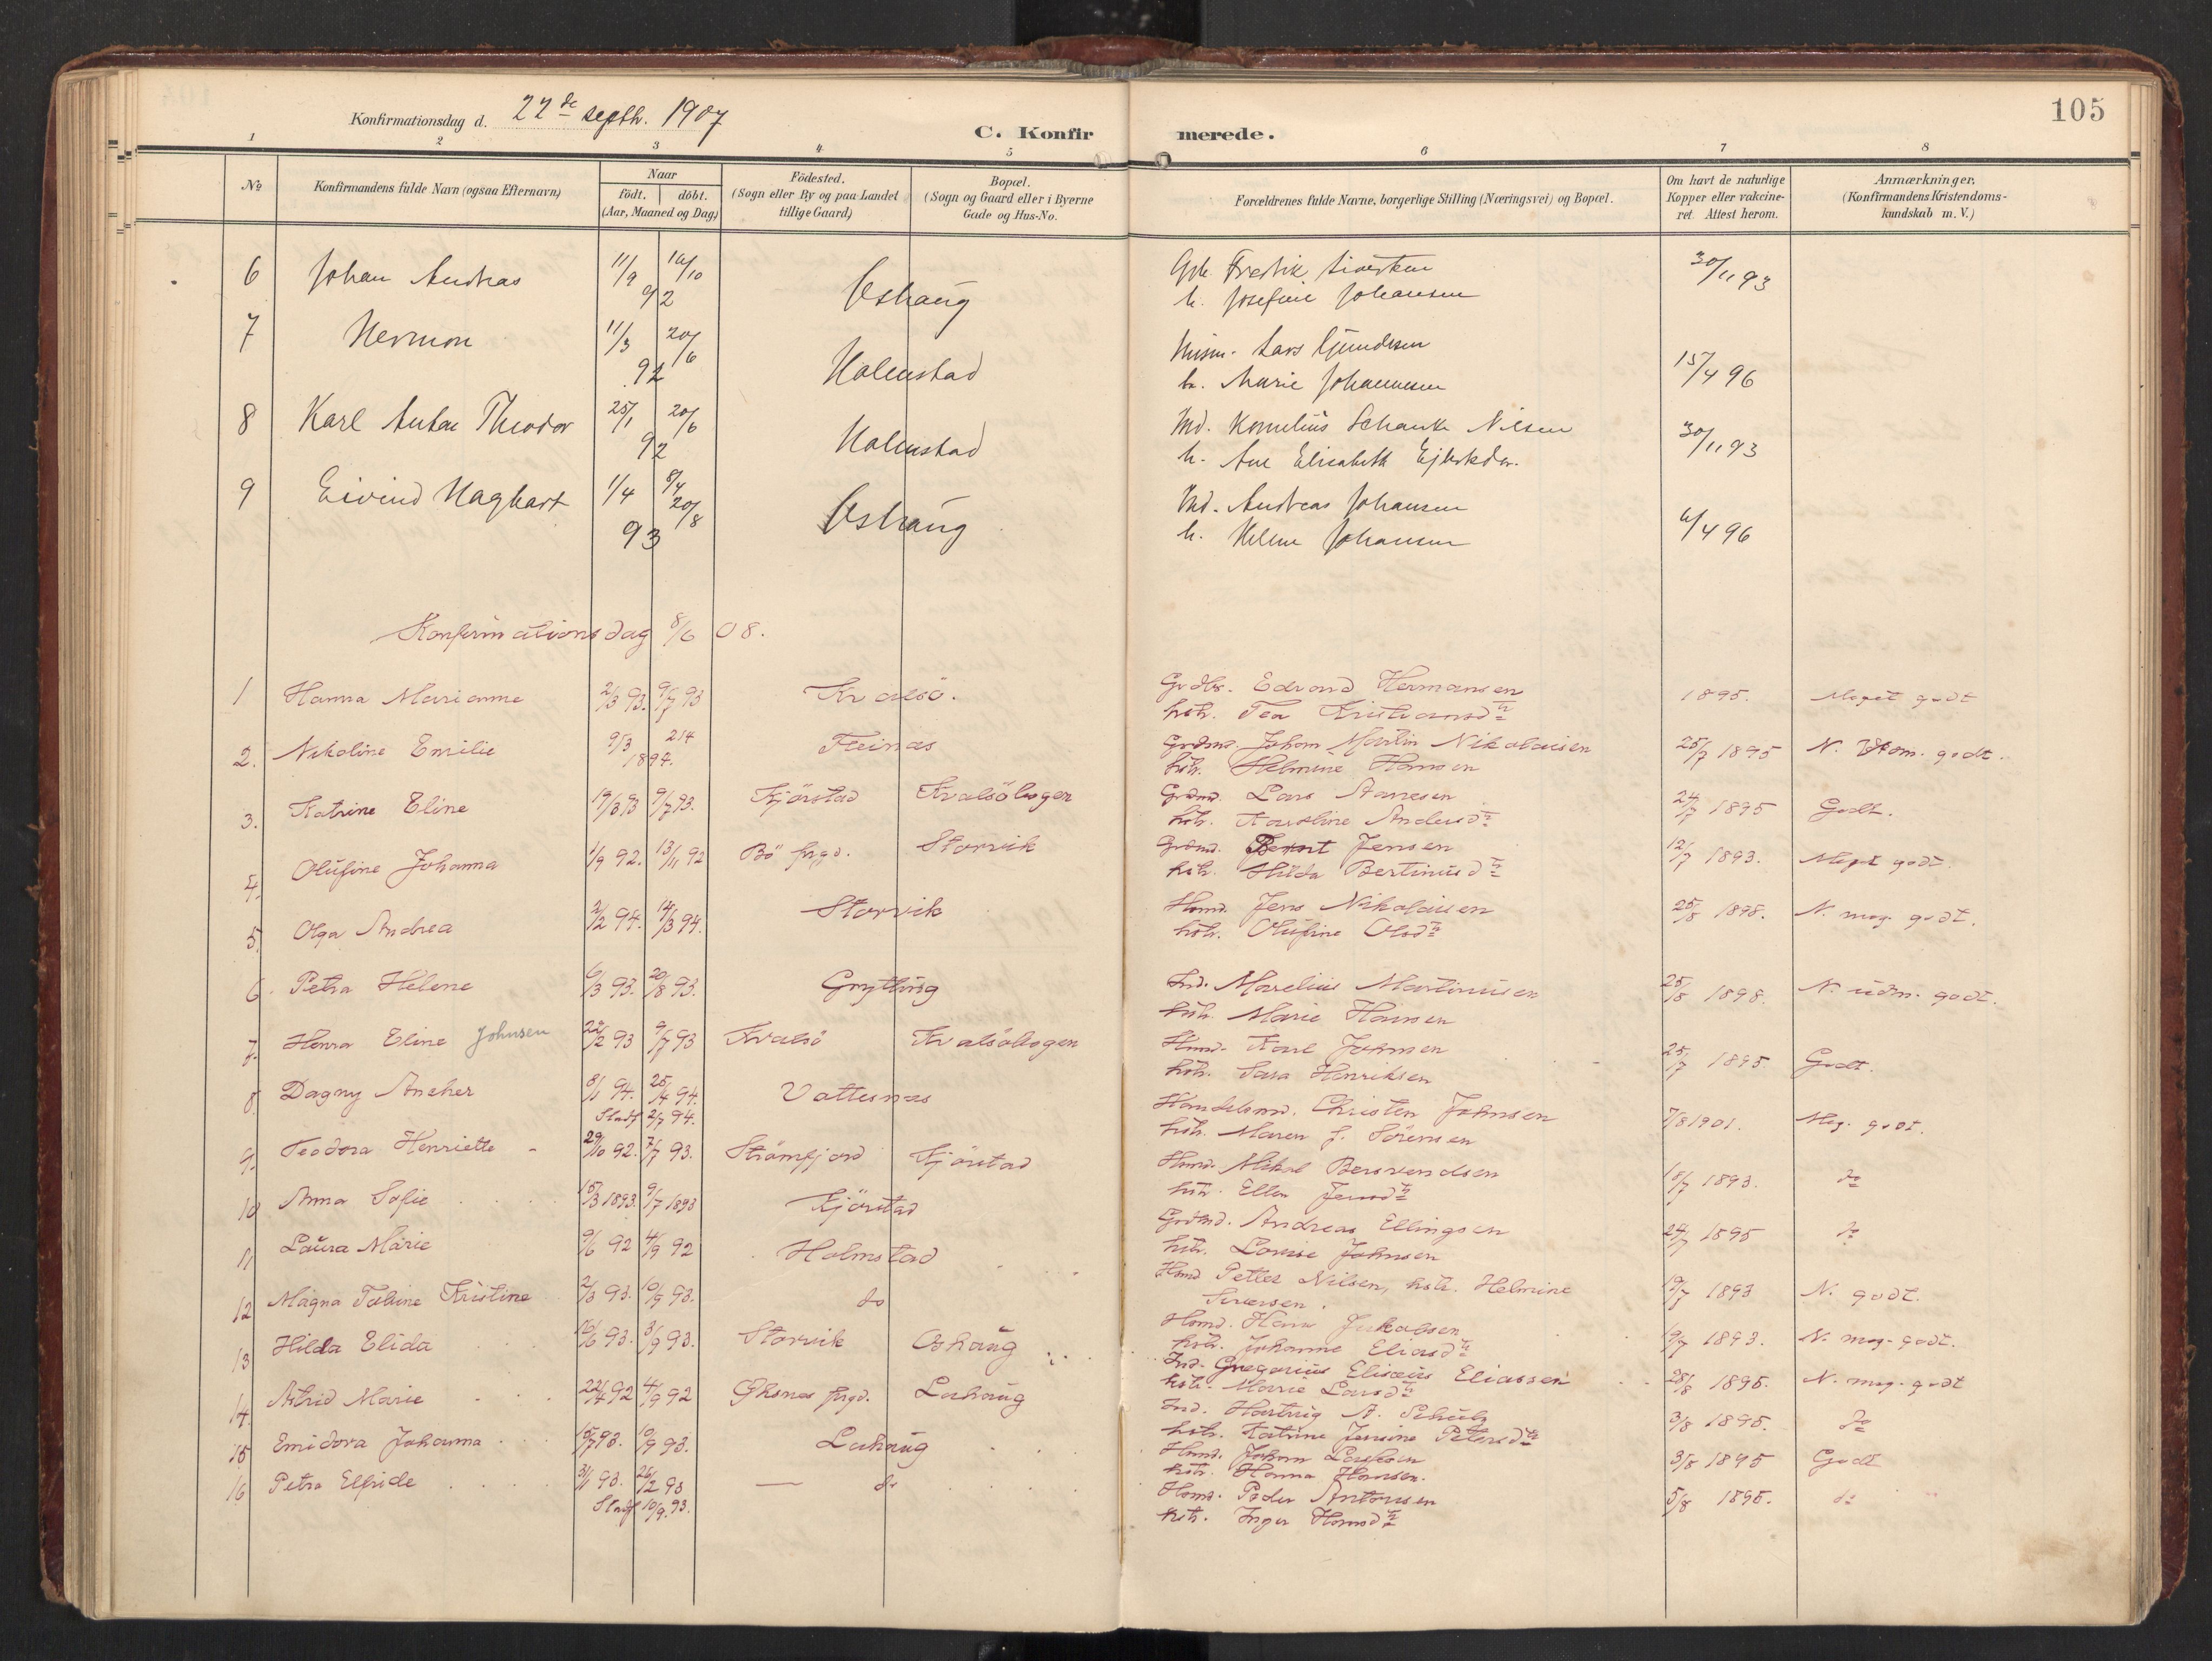 105
Konfirmationsdag d. 22de septbr. 1907
C. Konfirmerede.
1 2 3 4 5 6 7 8
No
Konfirmandens fulde Navn (ogsaa Efternavn)
Naar
födt. döbt.
(Aar, Maaned og Dag)
Födested.
(Sogn eller By og paa Landet
tillige Gaard)
Bopæl.
(Sogn og Gaard eller i Byerne
Gade og Hus-No.
Forældrenes fulde Navne, borgerlige Stilling (Næringsvei) og Bopæl.
Om havt de naturlige
Kopper eller vakcine-
ret. Attest herom.
Anmærkninger.
(Konfirmandens Kristendoms-
kundskab m. V.)
6 Johan Andreas 11/9 16/10 92 Oshaug Fredrik Sivertsen 30/11 93
h. Josefine Johansen
7 Hermon 11/3 20/6 92 Holmstad Husm. Lars Gundersen
h. Marie Johannesen 15/4 96
8 Karl Anton Theodor 25/1 20/6 92 Holmstad Ind. Kornelius Schanke Nilsen
h. Ane Elisabeth Ejlertsdr. 30/11 93
9 Eivind Hagbart 1/4 8/4 20/8 93 Oshaug Ind. Andreas Johansen
h. Helene Johansen 6/4 96
Konfirmationsdag 8/6 08.
1 Hanna Marianne 2/3 93. 9/7 93 Kvalsö. Grdbr. Edvard Hermansen 1895. Meget godt
hstr. Tea Kristiansdtr
2. Nikoline Emilie 9/3 21/4 1894. Fleinas Grdmd. Johan Martin Nikolaisen 25/7 1895 N. Utm. godt.
hstr. Helmine Hansen
3. Katrine Eline 19/3 93 9/7 93. Kjörstad Kvalsöbogen Grdmd. Lars Hansen 24/7 1895 Godt.
hstr. Karoline Andersdtr
4. Olufine Johanna 1/9 92. 13/11 92 Bö prgd. Storvik Grdmd. Bernt Jensen 12/7 1893. Meget godt.
hstr. Hilda Bertinusdtr
5. Olga Andrea 2/2 94. 14/3 94. Storvik Husmd. Jens Nikolaisen 25/8 1898. N. meg. godt.
hstr. Olufine Olsdtr
6. Petra Helene 6/3 93. 20/8 93. Grytting Ind. Marelius Martinusen 25/8 1898. N. udm. godt.
hstr. Marie Hansen
7. Hanna Eline Johnsen 22/2 93 9/7 93 Kvalsö Kvalsöbogen Husmd. Karl Johnsen 25/7 1895 Godt.
hstr. Sara Henriksen
8. Dagny Ancher 8/1 94. 25/4 94. Vottesnas Handelsmd. Christen Johnsen 7/8 1901. Meg. godt.
Stadf 2/7 94. hstr. Maren J. Sörensen
9. Teodora Henriette 29/10 92. 7/7 93. Strömfjord Kjörstad Husmd. Mikal Bersvendsen 18/7 1893. do
hstr. Ellen Jensdtr
10 Anna Sofie 15/3 1893. 9/7 1893 Kjörstad Grdmd. Andreas Ellingsen 24/7 1895 do
hstr. Lovise Johnsen
11 Laura Marie 9/6 92 4/9 92 Holmstad Husmd Petter Nilsen, hstr. Helmine 19/7 1893 N. godt.
Sivertsen.
12 Magna Tobine Kristine 2/3 93. 10/9 93. do Husmd. Hans Jakobsen 19/7 1893. N. meg. godt.
hstr. Johanne Eliasdtr
13 Hilda Elida 16/6 93. 3/9 93. Storvik Oshaug Ind. Gregorius Elisæus Eliassen 28/8 1895. N. meg. godt
hstr. Marie Larsdtr
14. Astrid Marie 22/4 92 4/9 92 Öksnes prgd. Lahaug Ind. Hartvig A. Schultz 3/8 1895. do
hstr. Katrine Jensine Petersdtr
15 Emidora Johanna 15/7 93. 10/9 93. Lahaug Husmd. Johan Larsen 3/8 1895 Godt
hstr. Hanna Hansen.
16 Petra Elfride 31/1 93. 26/2 93 — do Husmd. Peder Antonsen 5/8 1895. do
Stadf 10/9. 93. hstr. Inger Hansdtr